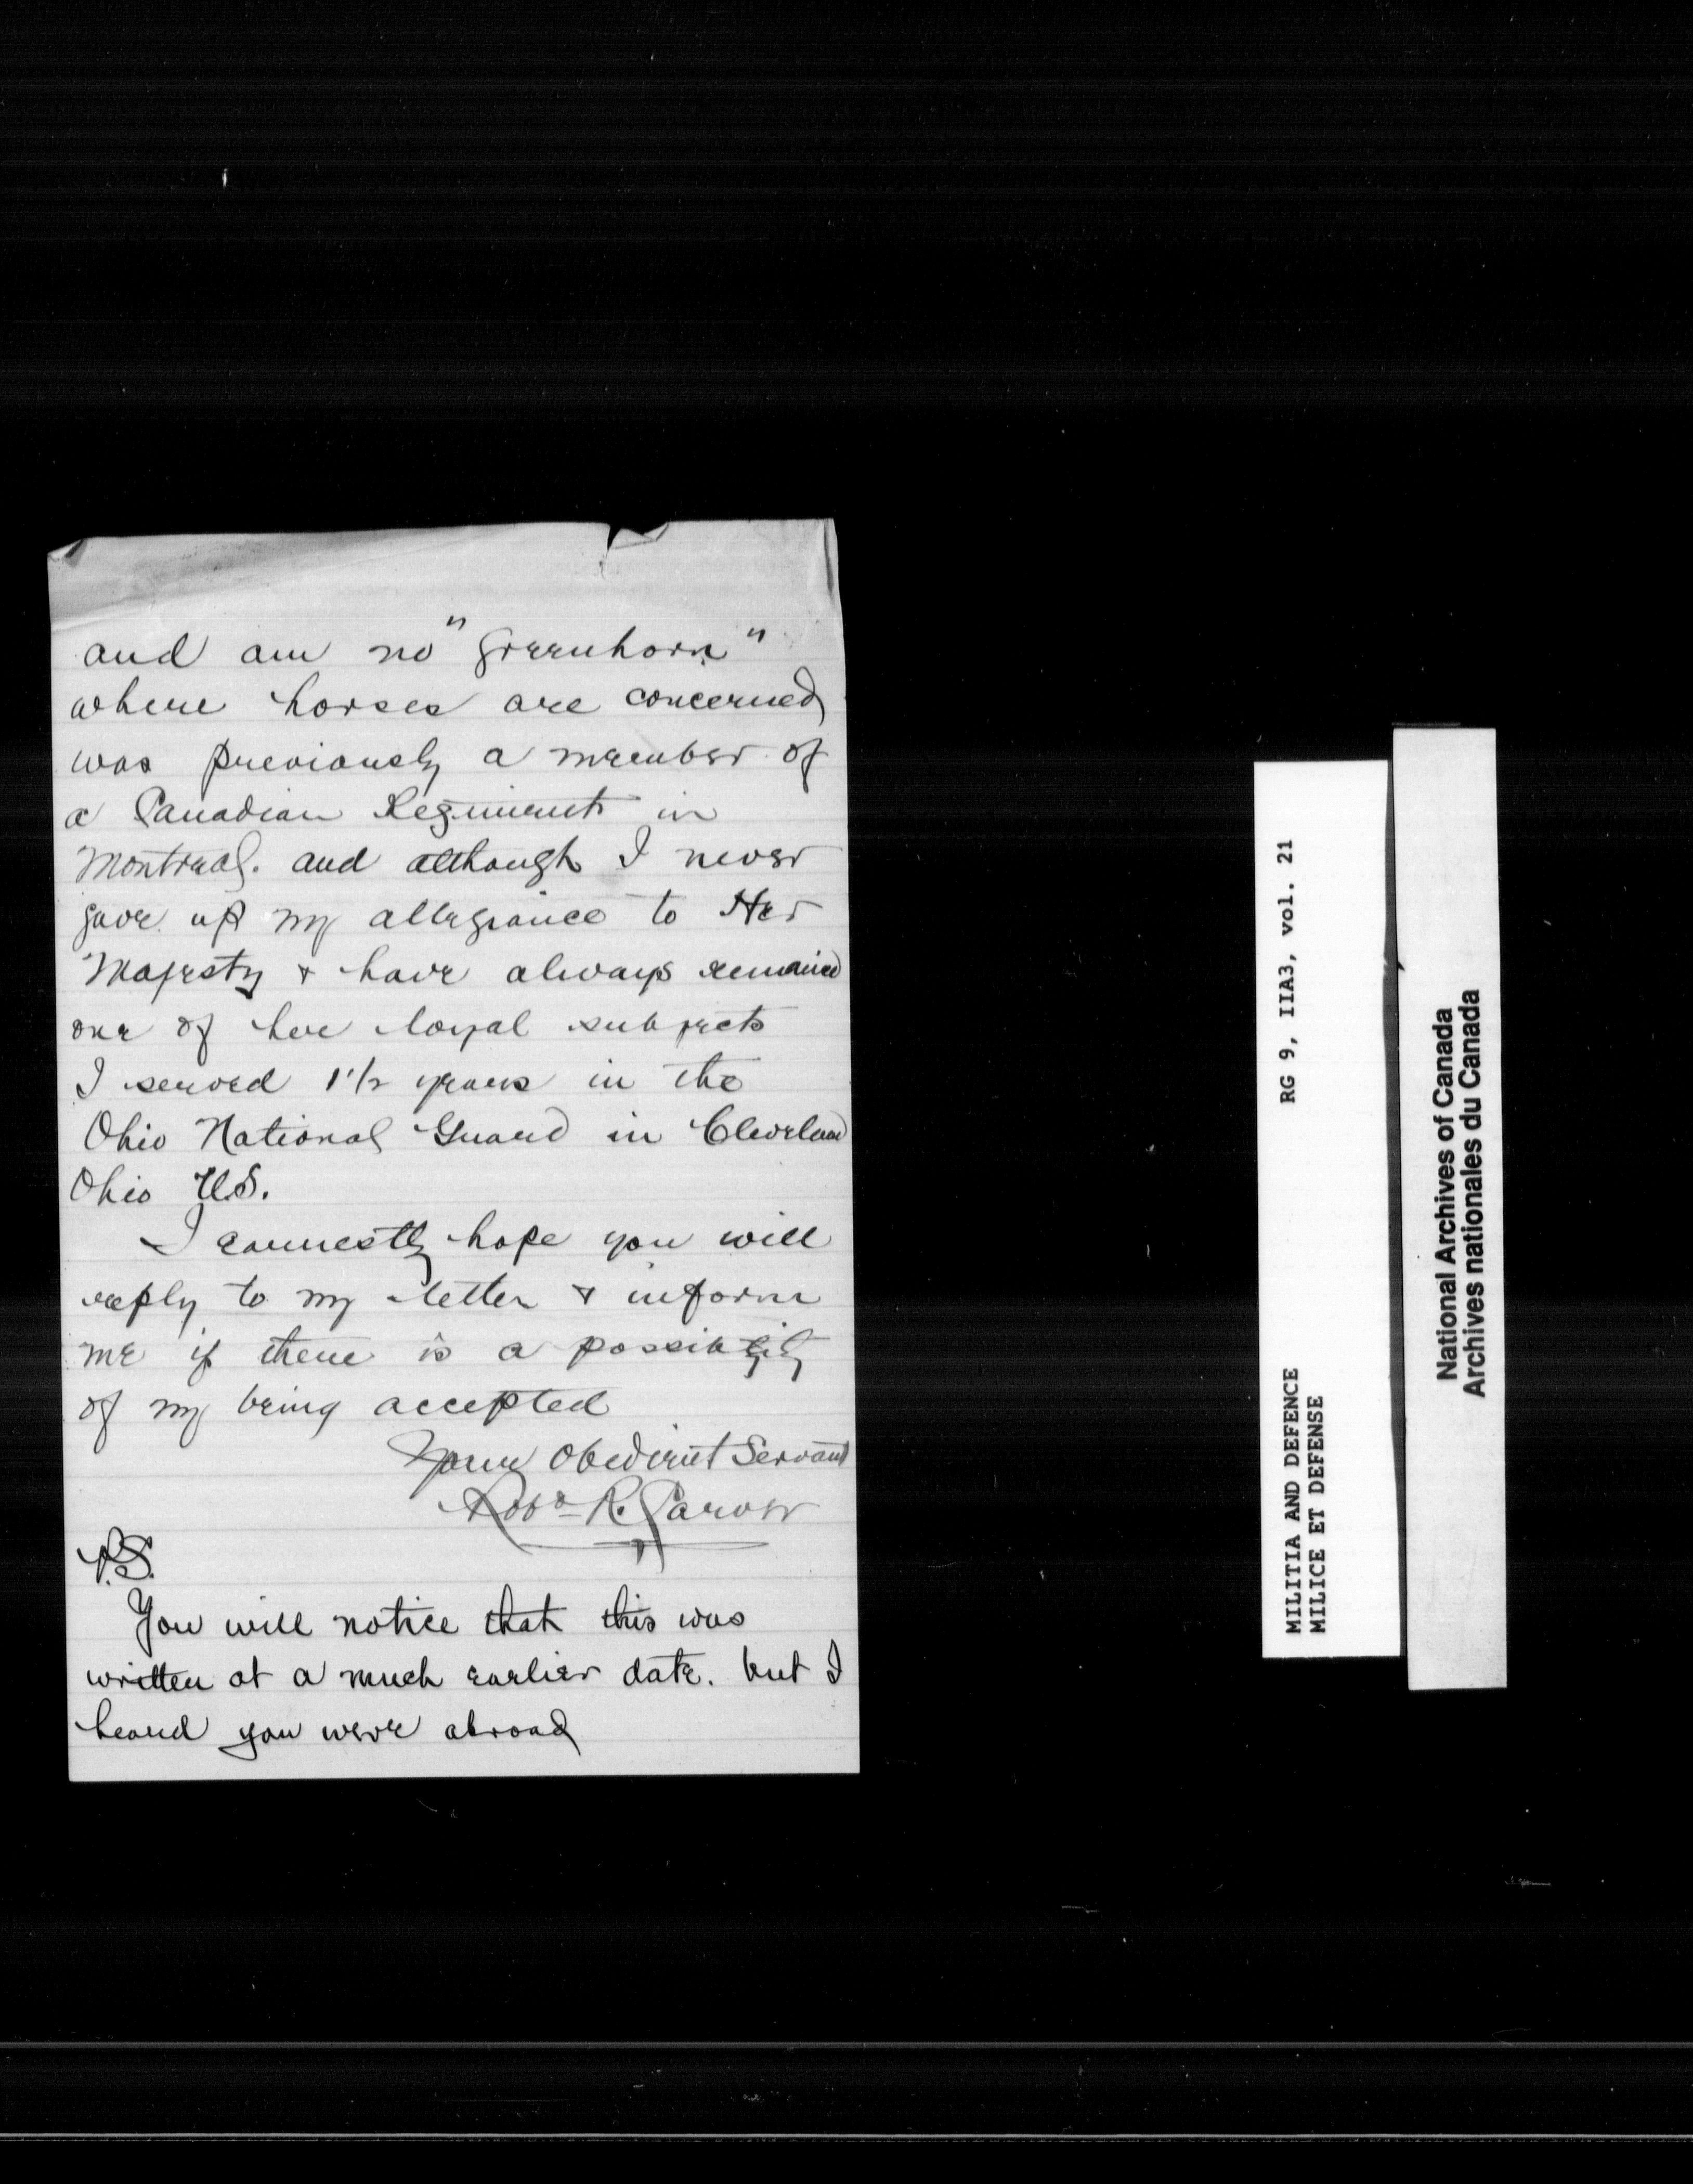 and am no "Greenhorn"
where horses are concerned
was previously a member of
a Canadian Regiment in
Montreal. and although I never
gave up my allegiance to Her
Majesty & have always remained
one of her loyal subjects
I served 1 1/2 years in the
Ohio National Guard in Cleveland
Ohio U.S.
I earnestly hope you will
reply to my letter & inform
me if there is a possibility
of my being accepted
Your Obedient Servant
R.
P.S.
You will notice that this was
written at a much earlier date. but I
heard you were abroad
RG 9, IIA3, vol. 21
MILITIA AND DEFENCE
MILICE ET DEFENSE
National Archives of Canada
Archives nationales du Canada